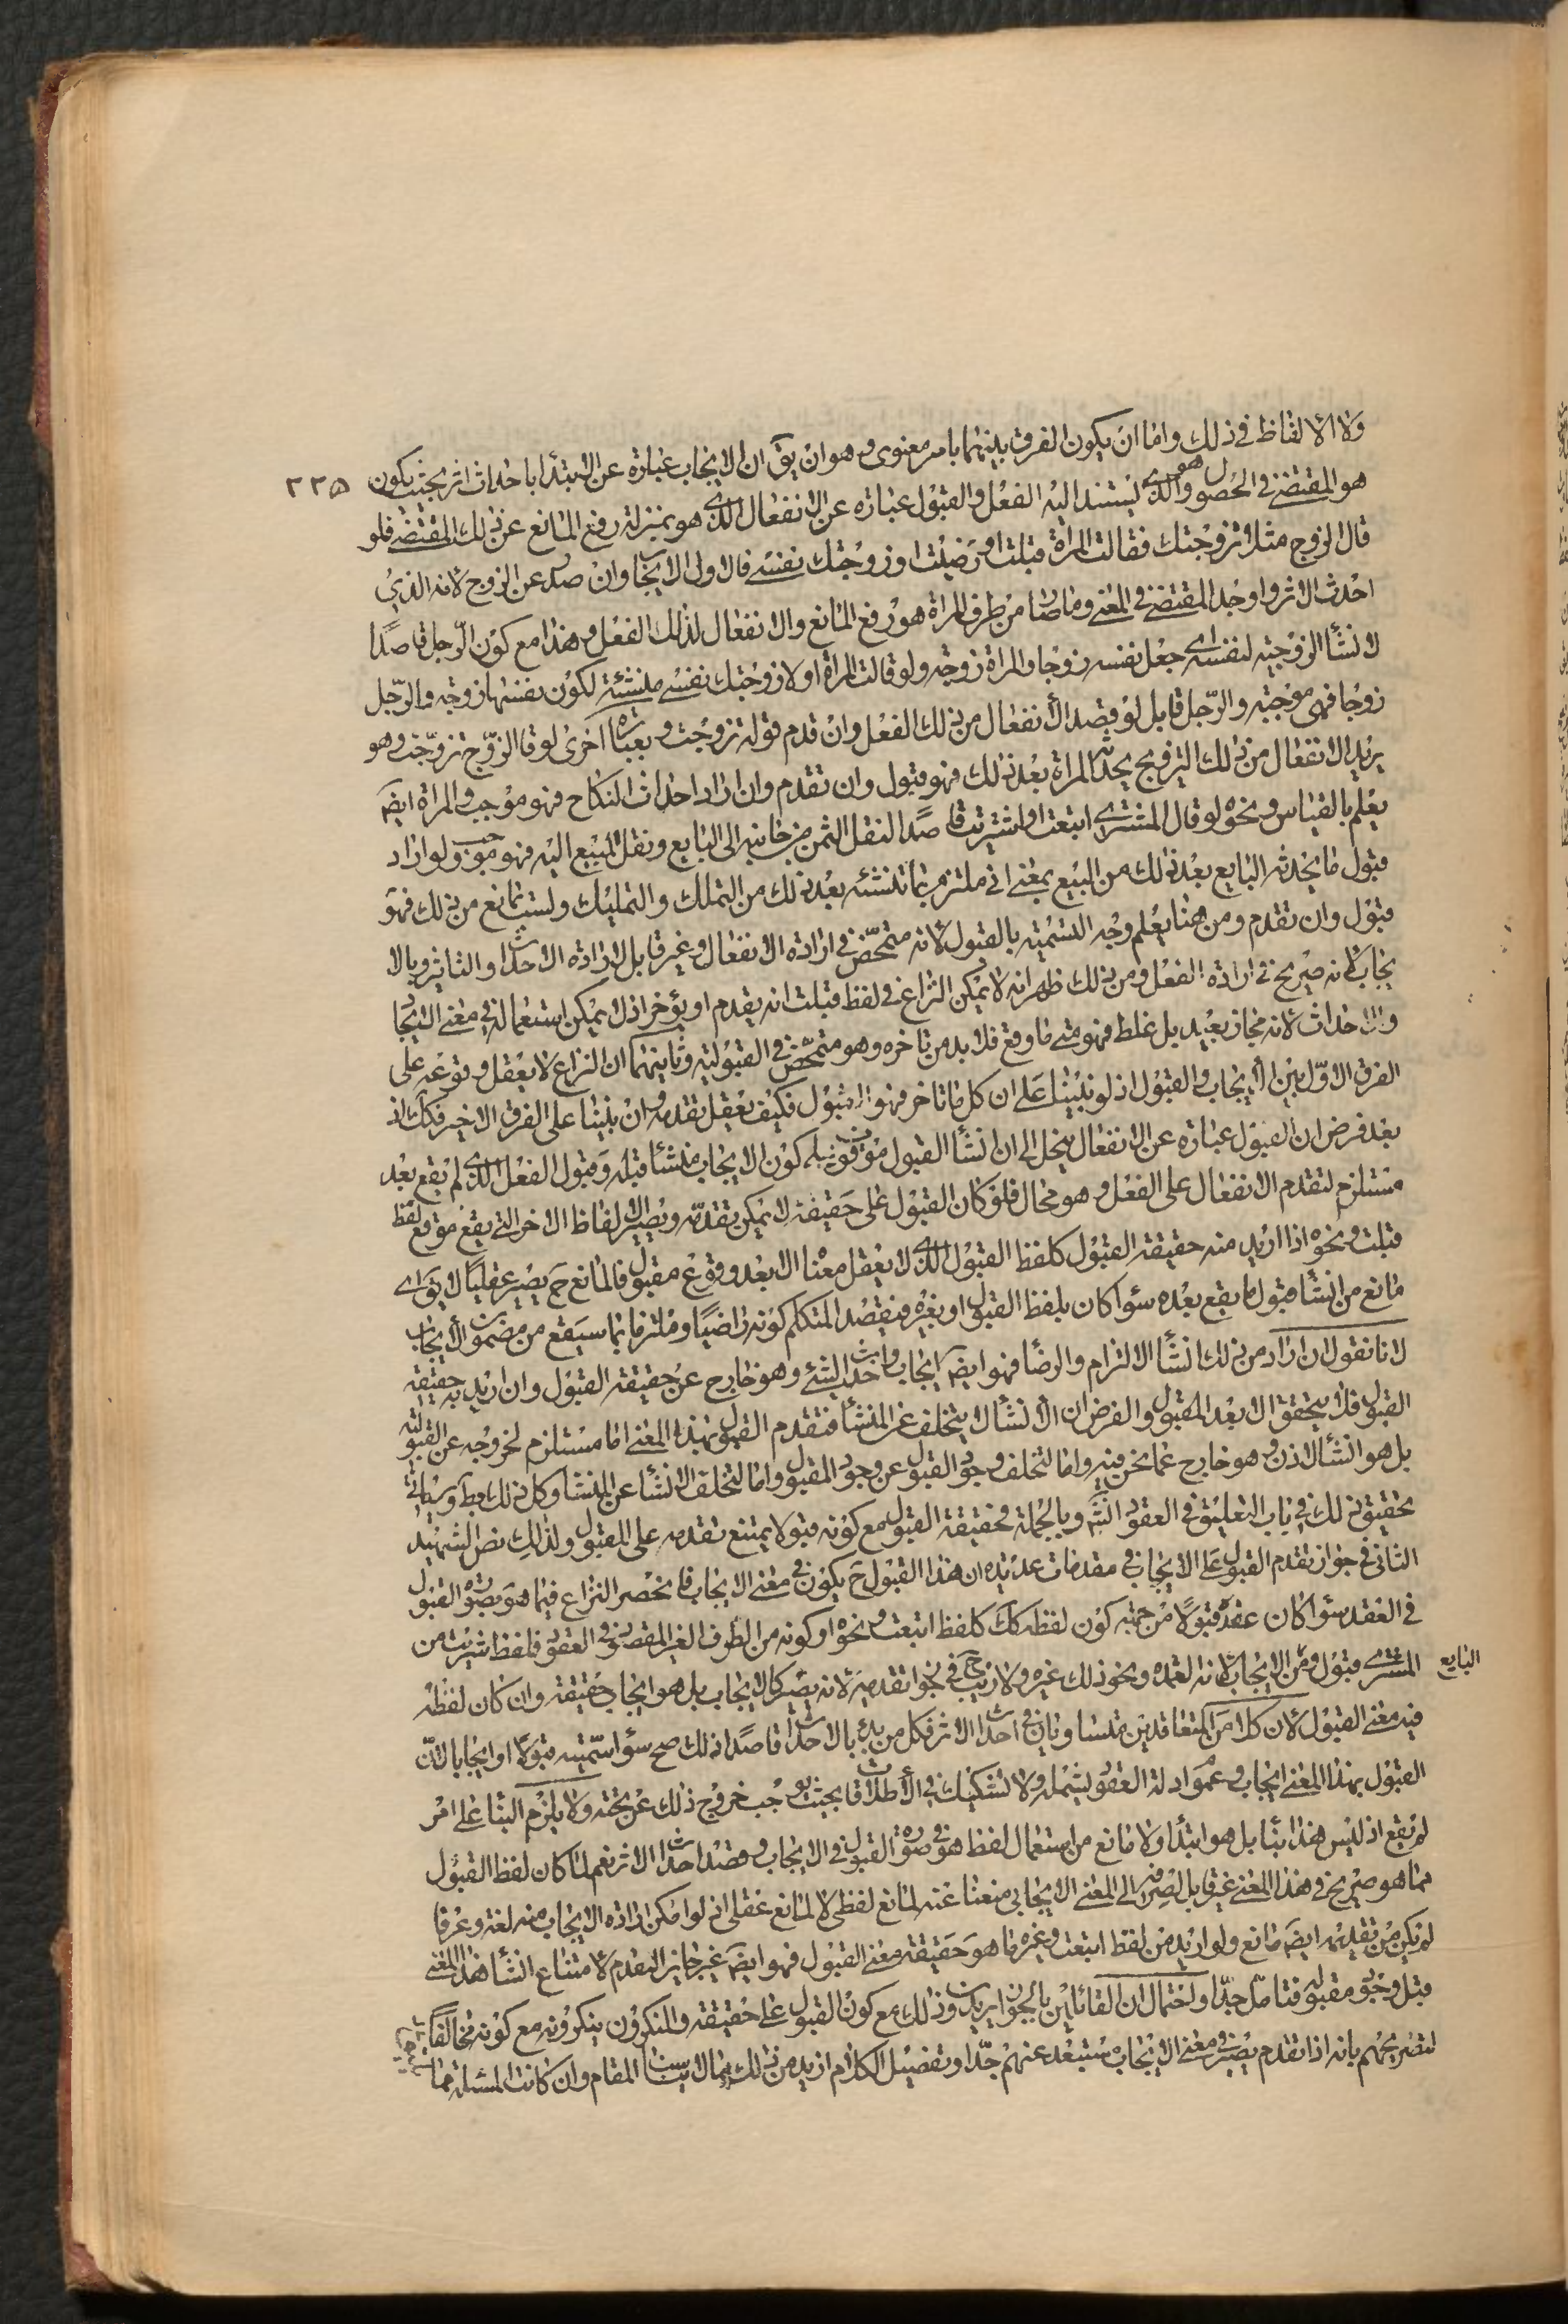 ولا الالفاظ في ذلك واما ان يكون الفرق بينهما بامر معنوى وهو ان يق ان الايجاب عبارة عن الابتداء باحداث اثر بحيث يكون
٢٣٥
هو المقتضى في الحصول والذى هو يستند اليه الفعل والقبول عبارة عن الانفعال الذى هو بمنزلة رفع المانع عن ذلك المقتضى فلو
قال الزوج مثلا تزوجتك فقالت المراة قبلت او رضيت او زوجتك نفسى فالاول الايجاب وان صدر عن الزوج لانه الذي
احدث الاثر واوجد المقتضى في المعنى وما صار من طرف المراة هو رفع المانع والانفعال لذلك الفعل وهذا مع كون الرجل قاصدا
لانشاء الزوجية لنفسه اى جعل نفسه زوجا والمراة زوجة ولو قالت المراة اولا زوجتك نفسى منشئة لكون نفسها زوجة والرجل
زوجا فهى موجبة والرجل قابل لو قصد الانفعال من ذلك الفعل وان قدم قوله تزوجت وبعبارة اخرى لو قال الزوج تزوجت وهو
يريد الانفعال من ذلك التزويج يحدثه المراة بعد ذلك فهو قبول وان تقدم وان اراد احداث النكاح فهو موجب والمراة ايضا
يعلم بالقياس ونحوه لو قال المشترى ابتعت او اشتريت قاصدا لنقل الثمن من جانبه الى البايع ونقل المبيع اليه فهو موجب ولو اراد
قبول ما يحدثه البايع بعد ذلك من البيع بمعنى انى ملتزم بما تنشئه بعد ذلك من التملك والتمليك ولست بمانع من ذلك فهو
قبول وان تقدم ومن هنا يعلم وجه التسمية بالقبول لانه متمحض في ارادة الانفعال وغير قابل لارادة الاحداث والتاثير وبالا
يجاب لانه صريح في ارادة الفعل ومن ذلك ظهر انه لا يمكن النزاع في لفظ قبلت انه يقدم او يؤخر اذ لا يمكن استعماله في معنى الايجاب
والاحداث لانه مجاز بعيد بل غلط فهو متى ما وقع فلا بد من تاخره وهو متمحض في القبولية وثانيهما ان النزاع لا يعقل وقوعه على
الفرق الاول بين الايجاب والقبول اذ لو بنينا على ان كل ما تاخر فهو القبول فكيف يعقل تقدمه وان بنينا على الفرق الاخير فكك اذ
بعد فرض ان القبول عبارة عن الانفعال ينحل الى ان انشاء القبول موقوف على كون الايجاب منشئا قبله وقبول الفعل الذى لم يقع بعد
مستلزم لتقدم الانفعال على الفعل وهو محال فلو كان القبول على حقيقة لا يمكن تقدمه ويصير الالفاظ الاخر التى يقع موقع لفظ
قبلت ونحوه اذا اريد منه حقيقة القبول كلفظ القبول الذى لا يعقل معناه الا بعد وقوع مقبول فالمانع ح يصير عقليا لا يق اى
مانع من انشاء قبول ما يقع بعده سواء كان بلفظ القبول او بغيره فيقصد المتكلم كونه راضيا وملتزما بما سيقع من مضمون الايجاب
لانا نقول ان اراد من ذلك انشاء الالتزام والرضا فهو ايضا ايجاب واحداث لشئ وهو خارج عن حقيقة القبول وان اريد به حقيقة
القبول فلا يتحقق الا بعد المقبول والفرض ان الانشاء لا يتخلف عن المنشأ فتقدم القبول بهذا المعنى اما مستلزم لخروجه عن القبولية
بل هو انشاء لاذن وهو خارج عما نحن فيه واما لتخلف وجود القبول عن وجود المقبول واما لتخلف الانشاء عن المنشأ وكل ذلك بط وسياتى
تحقيق ذلك في باب التعليق في العقود انش وبالجملة فحقيقة القبول مع كونه قبولا يمتنع تقدمه على المقبول ولذلك نص الشهيد
الثانى في جواز تقدم القبول على الايجاب في مقدمات عديده ان هذا القبول ح يكون في معنى الايجاب فانحصر النزاع فيما هو بصورة القبول
في العقد سواء كان عقده قبولا من جهة كون لفظه كك كلفظ ابتعت ونحوه او كونه من الطرف الغير المقصود في العقود فلفظ اشتريت من
المشترى قبول ومن البايع الايجاب لانه العمده ونحو ذلك غيره ولا ريب ح في نحو تقدمه لانه يصير كالايجاب بل هو ايجاب حقيقة وان كان لفظه
فيه معنى القبول لان كلا من المتعاقدين متساويان في احداث الاثر فكل من بدء بالاحداث قاصدا لذلك صح سواء سميته قبولا او ايجابا لان
القبول بهذا المعنى ايجاب وعموم ادلة العقود يشمله ولا تشكيك في الاطلاقات بحيث يوجب خروج ذلك عن تحته ولا يلزم البناء على امر
لم يقع اذ ليس هذا بناء بل هو ابتداء ولا مانع من استعمال لفظ هو في صورة القبول في الايجاب وقصد احداث الاثر نعم لما كان لفظ القبول
مما هو صريح في هذا المعنى غير قابل لصرفه الى المعنى الايجابى منعنا عنه لمانع لفظى لا لمانع عقلى اذ لو امكن ارادة الايجاب منه لغة وعرفا
لم يكن من تقديمه ايضا مانع ولو اريد من لفظ ابتعت وغيره ما هو حقيقة معنى القبول فهو ايضا غير جايز التقدم لامتناع انشاء هذا المعنى
قبل وجود مقبوله فتامل جدا واحتمال ان القائلين بالجواز يريدون ذلك مع كون القبول على حقيقته والمنكرون ينكرونه مع كونه مخالفا
لتصريحهم بانه اذا تقدم يصير في معنى الايجاب مستبعد عنهم جدا وتفصيل الكلام ازيد من ذلك مما لا يناسب المقام وان كانت المسئلة مما